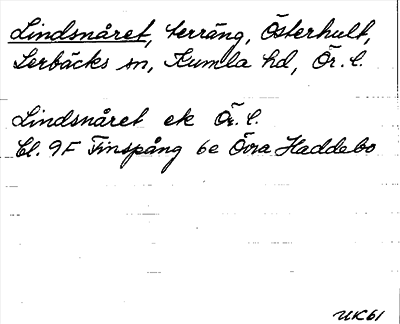 Lindsnåret, terräng, Österhult,
Lerbäcks sn, Kumla hd, Ör. l.
Lindsnåret ek Ör. l.
Bl. 9F Finspång 6e Övra Haddebo
UK61